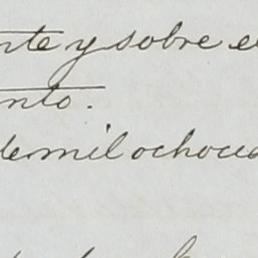 nte y sobre e
nto.
de mil ochoci